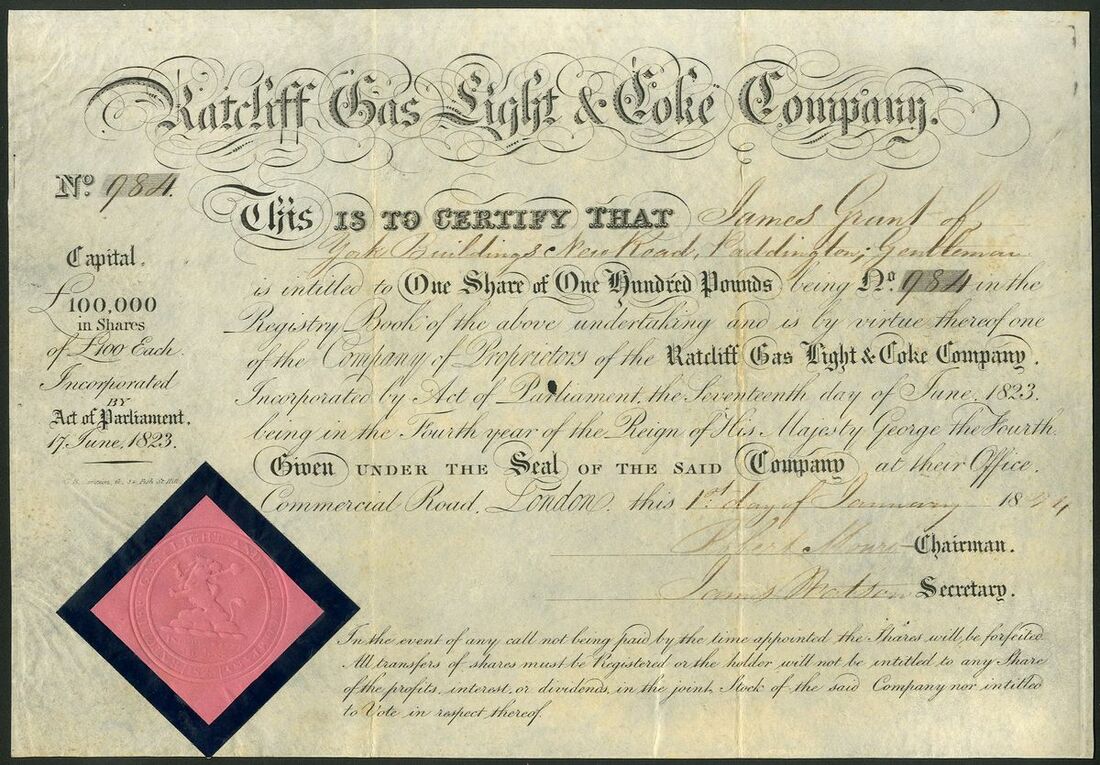 Ratcliff Gas Light & Coke Company.
No. 984.
This IS TO CERTIFY THAT James Grant of
York Buildings New Road, Paddington; Gentleman
is intitled to One Share of One Hundred Pounds being No. 984 in the
Registry Book of the above undertaking and is by virtue thereof one
of the Company of Proprietors of the Ratcliff Gas Light & Coke Company.
Incorporated by Act of Parliament, the Seventeenth day of June, 1823.
being in the Fourth year of the Reign of His Majesty George the Fourth.
Given UNDER THE Seal OF THE SAID Company at their Office.
Commercial Road, London, this 1st day of January 1824
Robert Chairman.
James Secretary.
Capital.
£100,000
in Shares
of £100 Each.
Incorporated
BY
Act of Parliament.
17 June, 1823.
Fish St. Hill
LIGHT AND
In the event of any call not being paid by the time appointed the Shares will be forfeited.
All transfers of shares must be Registered or the holder will not be intitled to any Share
of the profits, interest, or dividends, in the joint Stock of the said Company nor intitled
to Vote in respect thereof.